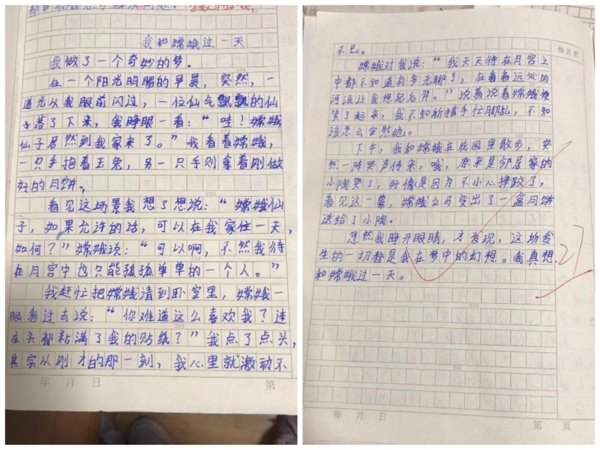 我和嫦娥过一天
我做了一个奇妙的梦。
在一个阳光明媚的早晨，突然，一
道光从我眼前闪过，一位仙气飘飘的仙
子落了下来，我睁眼一看：“哇！嫦娥
仙子居然到我家来了。”我看着嫦娥，
一只手抱着玉兔，另一只手则拿着刚做
好的月饼。
看见这场景我想了想说：“嫦娥仙
子，如果允许的话，可以在我家住一天，
如何？”嫦娥说：“可以啊，不然我待
在月宫中也只能孤孤单单的一个人。”
我赶忙把嫦娥请到卧室里，嫦娥一
眼看过去说：“你难道这么喜欢我？连
床头都粘满了我的贴纸？”我点了点头，
其实从刚才的那一刻，我心里就激动不
年 月 日
第
不已。
嫦娥对我说：“我天天待在月宫之
中都不知道有多无聊了，在看着这处
河流让我想起后羿。”说着说着嫦娥
哭了起来，我不知所措手忙脚乱，不知
该怎么安慰她。
下午，我和嫦娥在花园里散步，突
然一阵哭声传来，哦，原来是邻居家的
小陶哭了，好像是因为不小心摔跤了，
看见这一幕，嫦娥立马变出了一盒月饼
送给了小陶。
忽然我睁开眼睛，才发现，这场发
生的一切都是我在梦中的幻想。我真想
和嫦娥过一天。
27
年 月 日
第 页